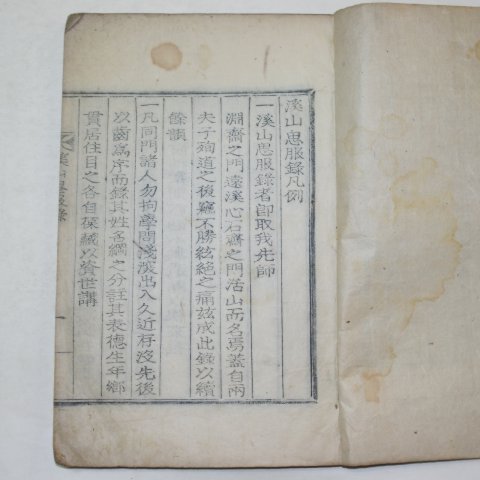 溪山思服錄凡例
一溪山思服錄者卽取我先師
淵齋之門遠溪心石齋之門活山而名焉蓋自兩
夫子殉道之後竊不勝絃絕之痛玆成此錄以續
餘韻
一凡同門諸人勿拘學問淺深出入久近存沒先後
以齒爲序而錄其姓名綱之分註其表德生年鄕
貫居住目之各自保藏以資世講
溪山思服錄
一